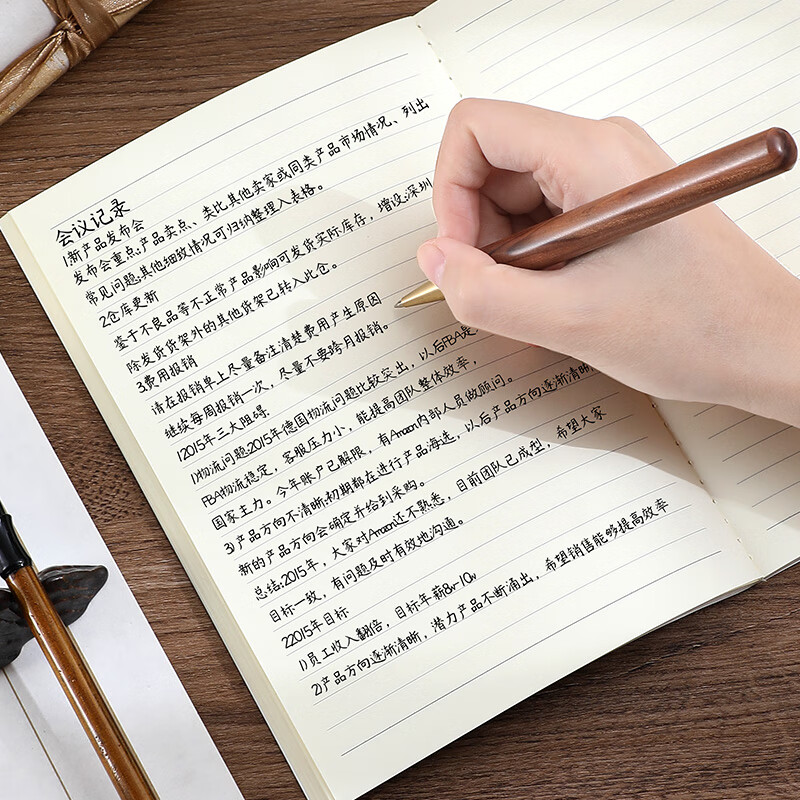 会议记录
1.新产品发布会
发布会重点:产品卖点、类比其他卖家或同类产品市场情况、列出
常见问题,其他细致情况可归纳整理入表格。
2仓库更新
鉴于不良品等不正常产品影响可发货实际库存，增设:深圳
除发货货架外的其他货架已转入此仓。
3.费用报销
请在报销单上尽量备注清楚费用产生原因
继续每周报销一次，尽量不要跨月报销。
12015年三大阻碍
1)物流问题2015年德国物流问题比较突出，以后FBA是
FBA物流稳定，客服压力小，能提高团队整体效率，
国家主力。今年账户已解限，有Amazon内部人员做顾问。
3)产品方向不清晰:初期都在进行产品海选，以后产品方向逐渐清晰
新的产品方向会确定并给到采购。
总结:2015年，大家对Amazon还不熟悉，目前团队已成型，希望大家
目标一致，有问题及时有效地沟通。
22015年目标
1)员工收入翻倍，目标年薪8w-10w
2)产品方向逐渐清晰，潜力产品不断涌出，希望销售能够提高效率